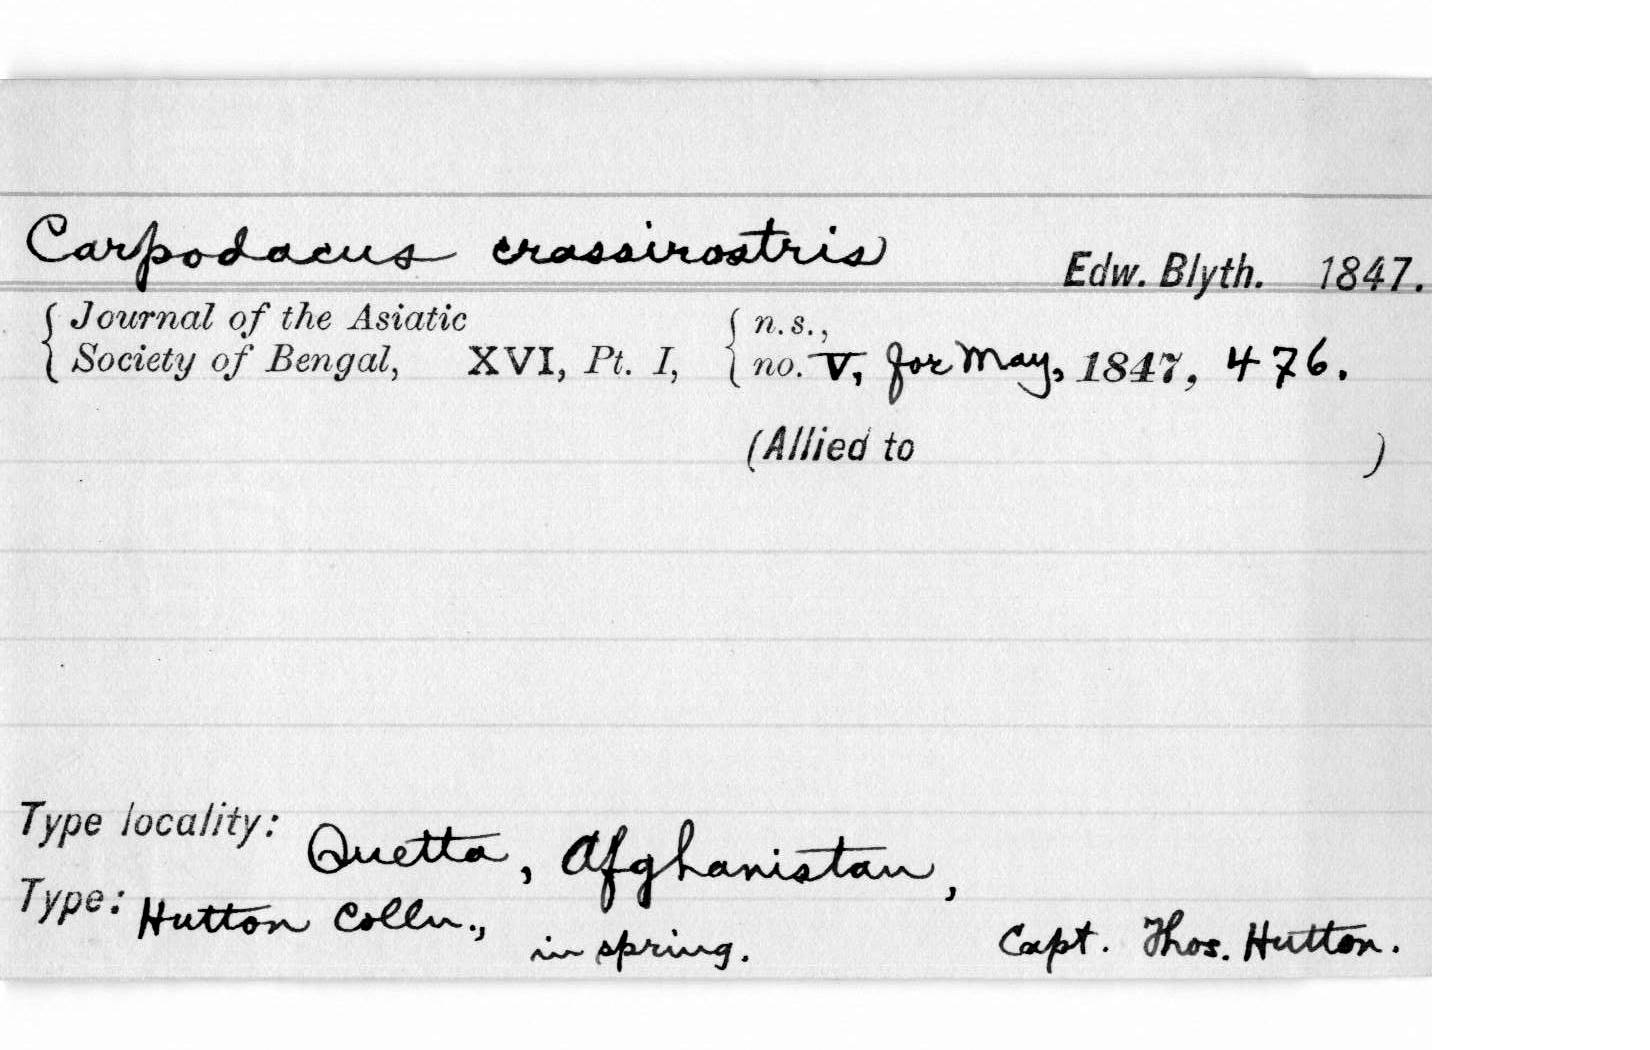 Carpodacus crassirostris Edw. Blyth. 1847.
{ Journal of the Asiatic { n.s.,
Society of Bengal, XVI, Pt. I, no. V, for May, 1847, 476.
(Allied to )
Type locality: Quetta, Afghanistan,
Type: Hutton Colln., in spring. Capt. Thos. Hutton.